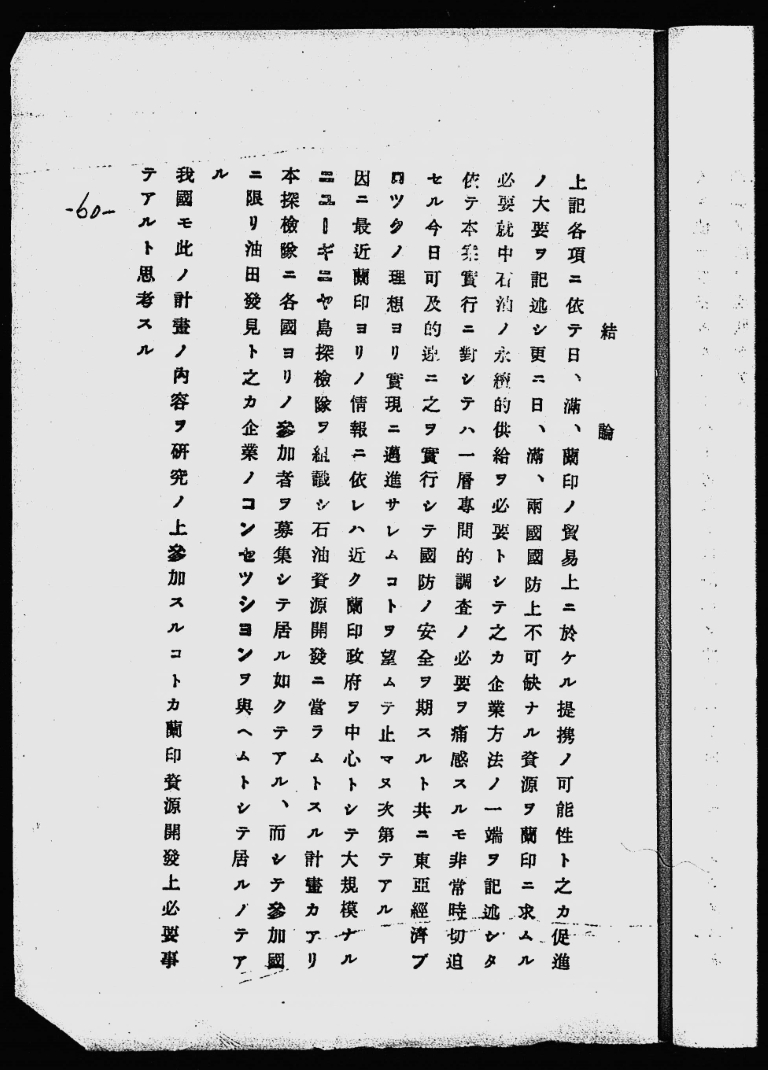 結論
上記各項ニ依テ日、滿、蘭印ノ貿易上ニ於ケル提携ノ可能性ト之カ促進
ノ大要ヲ記述シ更ニ日、滿、兩國國防上不可缺ナル資源ヲ蘭印ニ求ムル
必要就中石油ノ永續的供給ヲ必要トシテ之カ企業方法ノ一端ヲ記述シタ
依テ本業實行ニ對シテハ一層專問的調查ノ必要ヲ痛感スルモ非常時切迫
セル今日可及的速ニ之ヲ實行シテ國防ノ安全ヲ期スルト共ニ東亞經濟ブ
ロツクノ理想ヨリ實現ニ邁進サレムコトヲ望ムテ止マヌ次第テアル
因ニ最近蘭印ヨリノ情報ニ依レハ近ク蘭印政府ヲ中心トシテ大規模ナル
ニユーギニヤ島探檢隊ヲ組織シ石油資源開發ニ當ラムトスル計畫カアリ
本探檢隊ニ各國ヨリノ參加者ヲ募集シテ居ル如クテアル、而シテ參加國
ニ限リ油田發見ト之カ企業ノコンセツシヨンヲ與ヘムトシテ居ルノテア
ル
我國モ此ノ計畫ノ內容ヲ硏究ノ上參加スルコトカ蘭印資源開發上必要事
テアルト思考スル
-60-